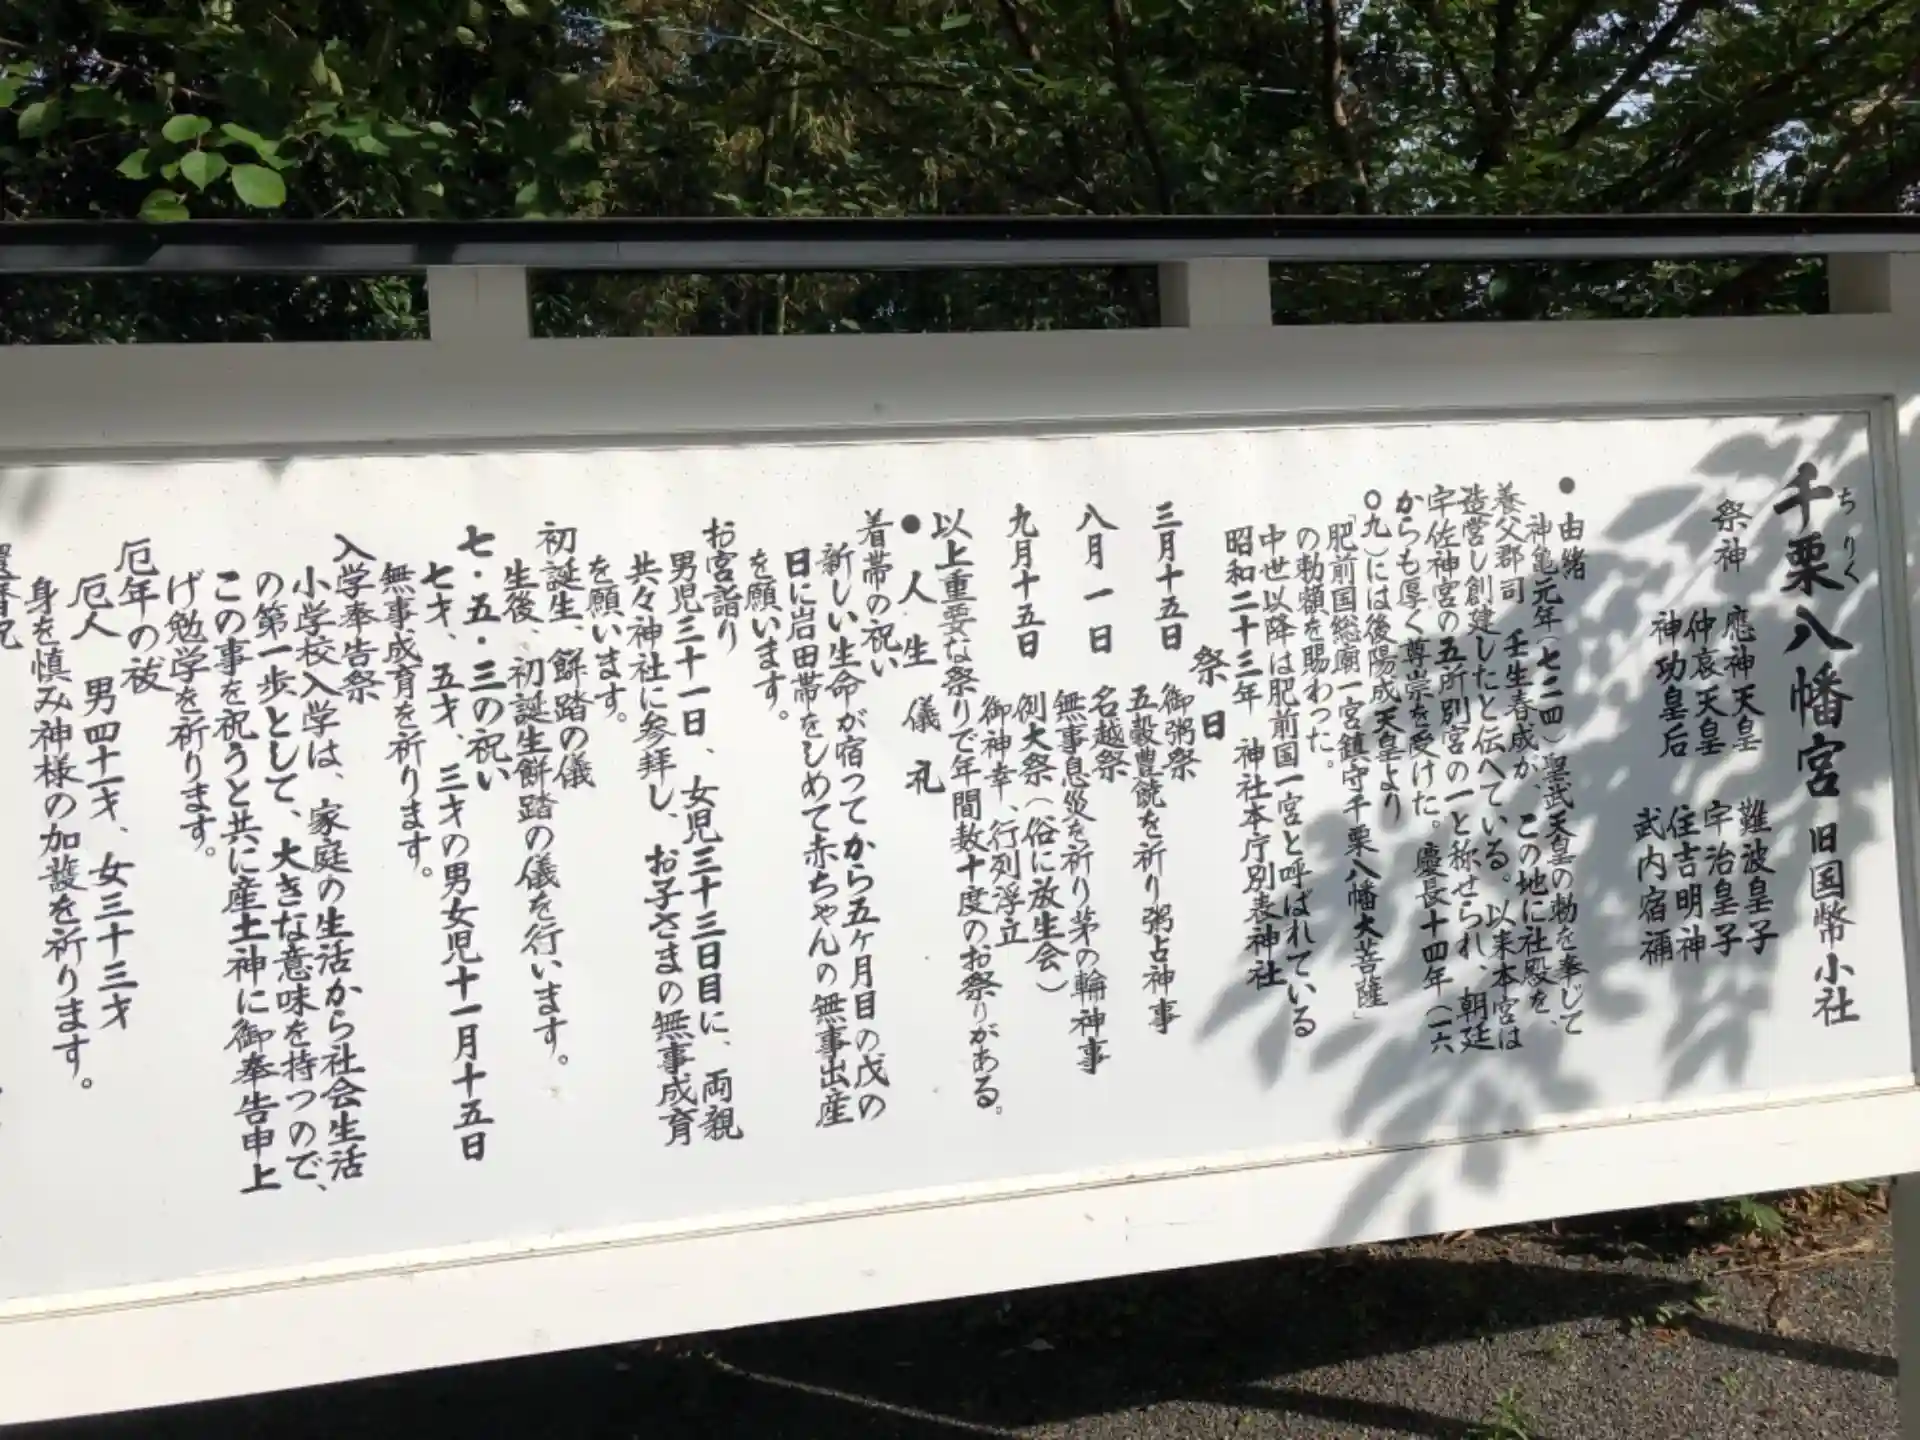 千栗八幡宮 旧国幣小社
ちりく
祭神 應神天皇 難波皇子
仲哀天皇 宇治皇子
神功皇后 住吉明神
武内宿禰
●由緒
神亀元年(七二四)聖武天皇の勅を奉じて
養父郡司 壬生春成が、この地に社殿を、
造営し創建したと伝へている。以来本宮は
宇佐神宮の五所別宮の一と称せられ、朝廷
からも厚く尊崇を受けた。慶長十四年(一六
〇九)には後陽成天皇より
「肥前国総廟一宮鎮守千栗八幡大菩薩」
の勅額を賜わった。
中世以降は肥前国一宮と呼ばれている
昭和二十三年 神社本庁別表神社
祭日
三月十五日 御粥祭
五穀豊饒を祈り粥占神事
八月一日 名越祭
無事息災を祈り茅の輪神事
九月十五日 例大祭(俗に放生会)
御神幸、行列浮立
以上重要な祭りで年間数十度のお祭りがある。
●人生儀礼
着帯の祝い
新しい生命が宿ってから五ヶ月目の戊の
日に岩田帯をしめて赤ちゃんの無事出産
を願います。
お宮詣り
男児三十一日、女児三十三日目に、両親
共々神社に参拝し、お子さまの無事成育
を願います。
初誕生、餅踏の儀
生後、初誕生餅踏の儀を行います。
七・五・三の祝い
七才、五才、三才の男女児十一月十五日
無事成育を祈ります。
入学奉告祭
小学校入学は、家庭の生活から社会生活
の第一歩として、大きな意味を持つので、
この事を祝うと共に産土神に御奉告申上
げ勉学を祈ります。
厄年の祓
厄人 男四十二才、女三十三才
身を慎み神様の加護を祈ります。